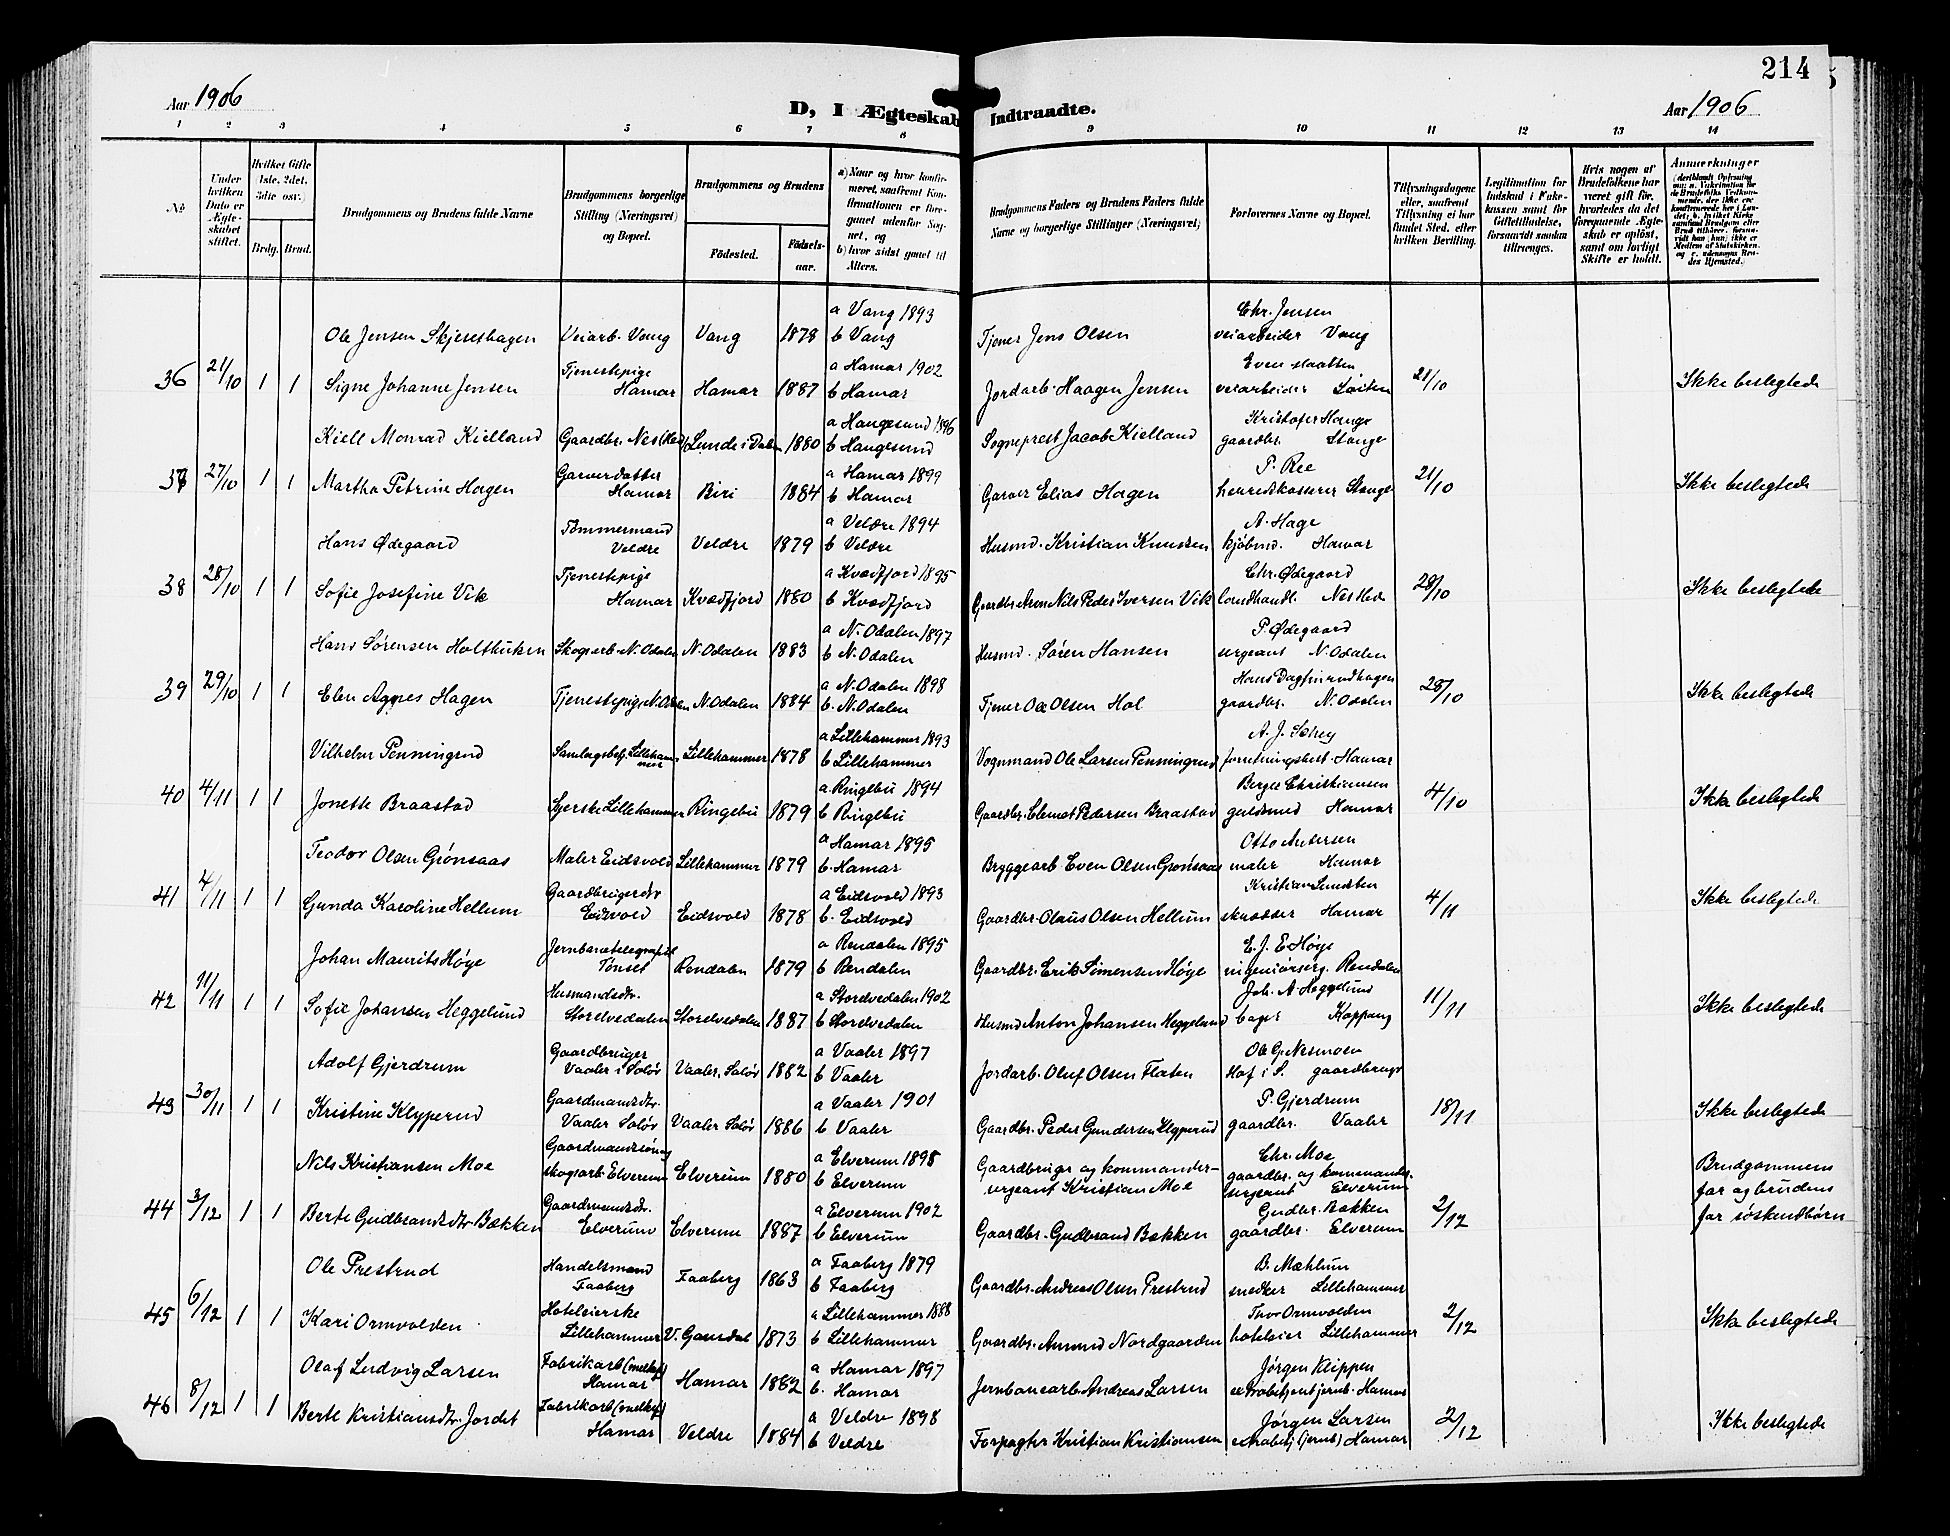 214
Aar 1906
D, I Ægteskab Indtraadte.
Aar 1906
1 2 3 4 5 6 7 8 9 10 11 12 13 14
№
Under hvilken Dato er Ægteskabet stiftet.
Hvilket Gifte 1ste, 2det, 3die osv.)
Brdg. Brud.
Brudgommens og Brudens fulde Navne
Brudgommens borgerlige Stilling (Næringsvei) og Bopæl.
Brudgommens og Brudens
Födested.
Födselsaar.
a) Naar og hvor konfirmeret, saafremt Konfirmationen er foregaaet udenfor Sognet, og
b) hvor sidst gaaet til Alters.
Brudgommens Faders og Brudens Faders fulde Navne og borgerlige Stillinger (Næringsvei)
Forlovernes Navne og Bopæl.
Tillysningsdagene eller, saafremt Tillysning ei har fundet Sted, efter hvilken Bevilling.
Legitimation for Indskud i Enkekassen samt for Giftetilladelse, forsaavidt saadan tiltrænges.
Hvis nogen af Brudefolkene har været gift för, hvorledes da det foregaaende Ægteskab er oplöst, samt om lovligt Skifte er holdt.
Anmærkninger
Ole Jensen Skjeseshagen Veiarb. Vang Vang 1878 a Vang 1893 b Vang Tjener Jens Olsen Chr. Jensen veiarbeider Vang
36 21/10 1 1 Signe Johanne Jensen Tjenestepige Hamar Hamar 1887 a Hamar 1902 b Hamar Jordarb. Haagen Jensen Even veiarbeider Löiten 21/10 Ikke beslegtede
Kiell Monrad Kielland Gaardbr. Nes (Hed) Lunde i Dalen 1880 a Haugesund 1896 b Haugesund Sogneprest Jacob Kielland Kristofer Hange gaardbr. Stange
37 27/10 1 1 Martha Petrine Hagen Garverdatter Hamar Biri 1884 a Hamar 1899 b Hamar Garver Elias Hagen P. Ree herredskasserer Stange 21/10 Ikke beslegtede
Hans Ødegaard Tømmermand Veldre Veldre 1879 a Veldre 1894 b Veldre Husmd. Kristian Knutsen A. Hage kjöbmd. Hamar
38 28/10 1 1 Sofie Josefine Vik Tjenestepige Hamar Kvædfjord 1880 a Kvædfjord 1895 b Kvædfjord Gaardbr. Nils Peder Iversen Vik Chr. Ødegaard landhandl. Nes Hed 28/10 Ikke beslegtede
Hans Sørensen Holthuken Skogarb. N. Odalen N. Odalen 1883 a N. Odalen 1897 b N. Odalen Husmd. Søren Hansen P. Ødegaard sergeant N. Odalen
39 29/10 1 1 Elen Agnes Hagen Tjenestepige N. Odalen N. Odalen 1884 a N. Odalen 1898 b. N. Odalen Tjener Ole Olsen Hol Hans Dagfinrudhagen gaardbr. N. Odalen 28/10 Ikke beslegtede
Vilhelm Penningrud Samlagsbest. Lillehammer Lillehammer 1878 a Lillehammer 1893 b Lillehammer Vognmand Ole Larsen Penningrud A. J. Schey forretningsbest. Hamar
40 4/11 1 1 Jonette Braastad Syerske Lillehammer Ringebu 1879 a Ringebu 1894 b Ringebu Gaardbr. Clemet Pedersen Braastad Berger Christiansen guldsmed Hamar 4/10 Ikke beslegtede
Teodor Olsen Grönsaas Maler Eidsvold Lillehammer 1879 a Hamar 1895 b. Hamar Bryggearb Even Olsen Grönsaas Otto Andersen maler Hamar
41 4/11 1 1 Gunda Karoline Hellum Gaardbrugerdtr Eidsvold Eidsvold 1878 a Eidsvold 1893 b. Eidsvold Gaardbr. Olaus Olsen Hellum Kristian Lundsten Hamar 4/11 Ikke beslegtede
Johan Maurits Høye Jernbanetelegrafist Tönset Rendalen 1879 a Rendalen 1895 b Rendalen Gaardbr. Erik Simensen Høye E. J. E Høye ingeniörserg. Rendalen
42 11/11 1 1 Sofie Johansen Heggelund Husmandsdtr. Storelvedalen Storelvedalen 1887 a Storelvedalen 1902 b Storelvedalen Husmd Anton Johansen Heggelund Joh. A. Heggelund bager Koppang 11/11 Ikke beslegtede
Adolf Gjerdrum Gaardbruger Vaaler i Solör Vaaler, Solör 1882 a Vaaler 1897 b Vaaler Jordarb. Oluf Olsen Flaten Ole G. Nesmoen Hof i S. gaardbruger
43 30/11 1 1 Kristine Klyperud Gaardmandsdtr. Vaaler Solör Vaaler Solör 1886 a Vaaler 1901 b Vaaler Gaardbr. Peder Gundersen Klyperud P. Gjerdrum gaardbr. Vaaler 18/11 Ikke beslegtede
Nils Kristiansen Moe Gaardmandssön og skogarb. Elverum Elverum 1880 a Elverum 1898 b Elverum Gaardbruger og kommandersergeant Kristian Moe Chr. Moe gaardbr. og kommander. sergeant Elverum Brudgommens far og brudens far söskendbörn
44 3/12 1 1 Berte Gudbrandsdtr Bækken Gaardmandsdtr. Elverum Elverum 1887 a Elverum 1902 b Elverum Gaardbr. Gudbrand Bækken Gudbr. Bækken gaardbr. Elverum 2/12
Ole Prestrud Handelsmand Faaberg Faaberg 1863 a Faaberg 1879 b Faaberg Gaardbr. Andreas Olsen Prestrud B. Mæhlum snedker Lillehammer
45 6/12 1 1 Kari Ormvolden Hoteleierske Lillehammer V. Gausdal 1873 a Lillehammer 1888 b Lillehammer Gaardbr. Amund Nordgaarden Thor Ormvolden hoteleier Lillehammer 2/12 Ikke beslegtede
Olaf Ludvig Larsen Fabrikarb (melkef) Hamar Hamar 1882 a Hamar 1897 b. Hamar Jernbanearb. Andreas Larsen Jørgen Klippen extrabetjent jernb. Hamar
46 8/12 1 1 Berte Kristiansdtr. Jordet Fabrikarb (melkef) Hamar Veldre 1884 a Veldre 1898 b Veldre Forpagter Kristian Kristiansen Jørgen Larsen extrabetj (jernb) Hamar 2/12 Ikke beslegtede